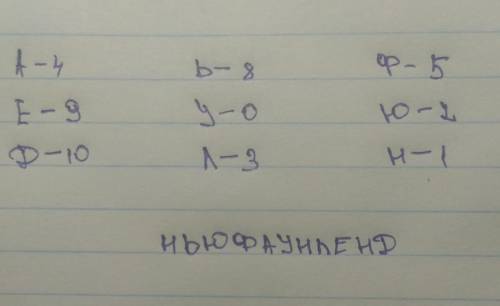 А-4 Ь-8 Ф-5
Е-9 У-0 Ю-2
Д-10 Л-3 Н-1
НЬЮФАУНЛЕНД